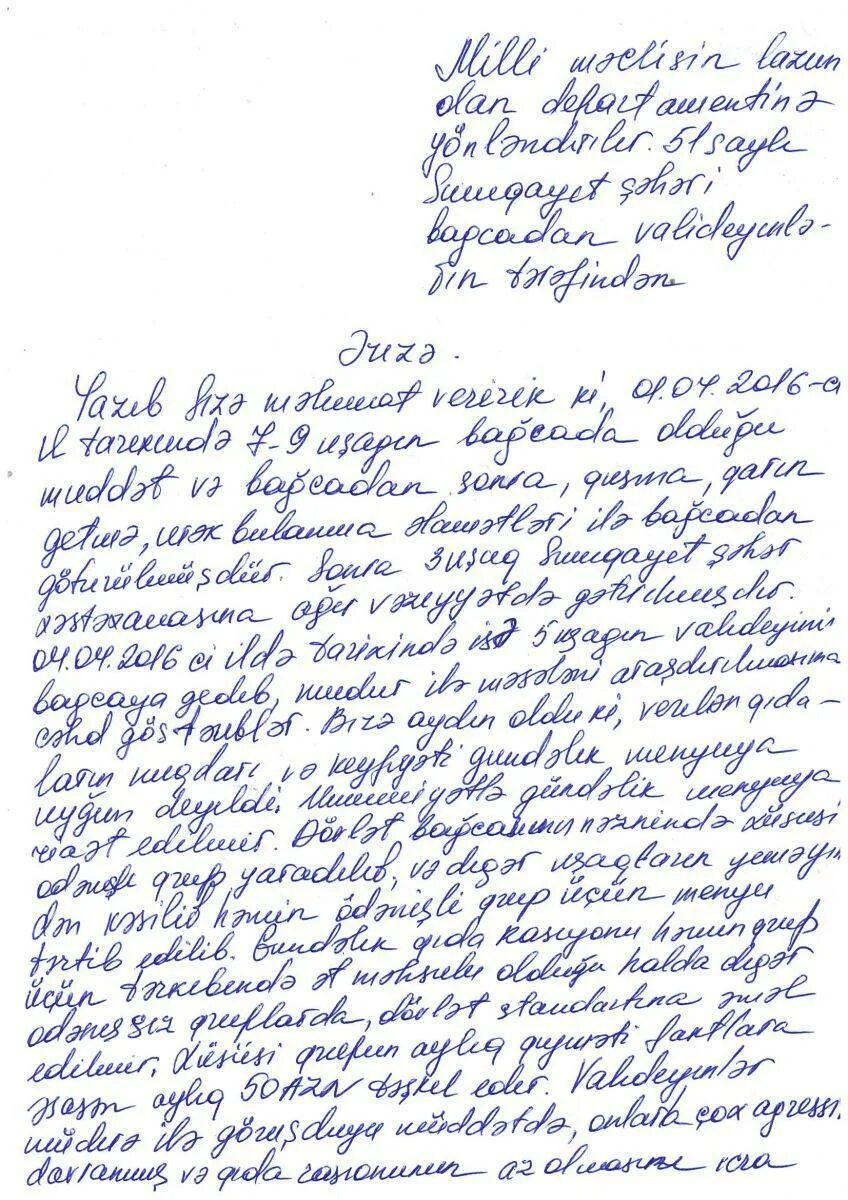 Milli məclisin lazım
olan departamentinə
yönləndirilir. 51 saylı
Sumqayet şəhəri
bagcadan valideyinlə-
rin tərəfindən
Ərizə.
Yazıb sizə məlumat veririk ki, 01.04.2016-cı
il tarixində 7-9 uşagın bağcada olduğu
muddət və bağcadan sonra, qusma, qarın
getmə, urək bulanma əlamətləri ilə bağcadan
götürülmüşdür. Sonra 3 uşaq Sumqayet şəhər
xəstəxanasına ağır vəziyyətdə gətirilmişdir.
04.04.2016 ci ildə tarixində isə 5 uşagın valideyini
bagcaya gedib, mudur ilə məsələni araşdırılmasına
cəhd göstəriblər. Bizə aydın oldu ki, verilən qida-
ların miqdarı və keyfiyəti gundəlik menyuya
uyğun deyildi. Ümumiyətlə gündəlik menyuya
riaət edilmir. Dövlət bağcasının nəznində xüsusi
ödənişli grup yaradılıb, və digər uşaqların yeməyin
dən kəsilib həmin ödənişli grup üçün menyu
tərtib edilib. Gundəlik qida rasiyonu həmin grup
üçün tərkibendə ət məhsulu olduğu halda digər
odənişsiz gruplarda, dövlət standartına əməl
edilmir. Xüsüsi grupun aylıq qiyməti faktlara
əsasən aylıq 50 AZN təşkil edir. Valideyinlər
müdirə ilə görüşduyu müddətdə, onlara çox agressi
davranmış və qida rasionunun az olmasını icra